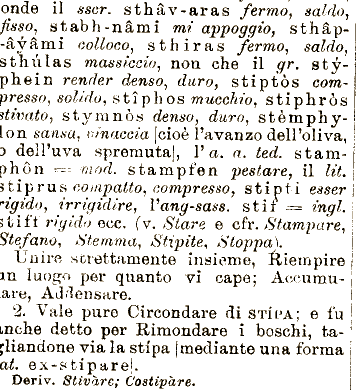 onde il sscr. sthâv-aras fermo, saldo,
fisso, stabh-nâmi mi appoggio, sthâp-
-âyâmi colloco, sthiras fermo, saldo,
sthúlas massiccio, non che il gr. stý-
phein render denso, duro, stiptòs com-
presso, solido, stîphos mucchio, stiphròs
stivato, stymnòs denso, duro, stèmphy-
lon sansa, vinaccia [cioè l'avanzo dell'oliva,
o dell'uva spremuta], l'a. a. ted. stam-
phôn = mod. stampfen pestare, il lit.
stiprus compatto, compresso, stipti esser
rigido, irrigidire, l'ang-sass. stif = ingl.
stift rigido ecc. (v. Stare e cfr. Stampare,
Stefano, Stemma, Stipite, Stoppa).
Unire strettamente insieme, Riempire
un luogo per quanto vi cape; Accumu-
lare, Addensare.
2. Vale pure Circondare di STÍPA; e fu
anche detto per Rimondare i boschi, ta-
gliandone via la stípa [mediante una forma
lat. ex-stipare].
Deriv. Stivàre; Costipàre.